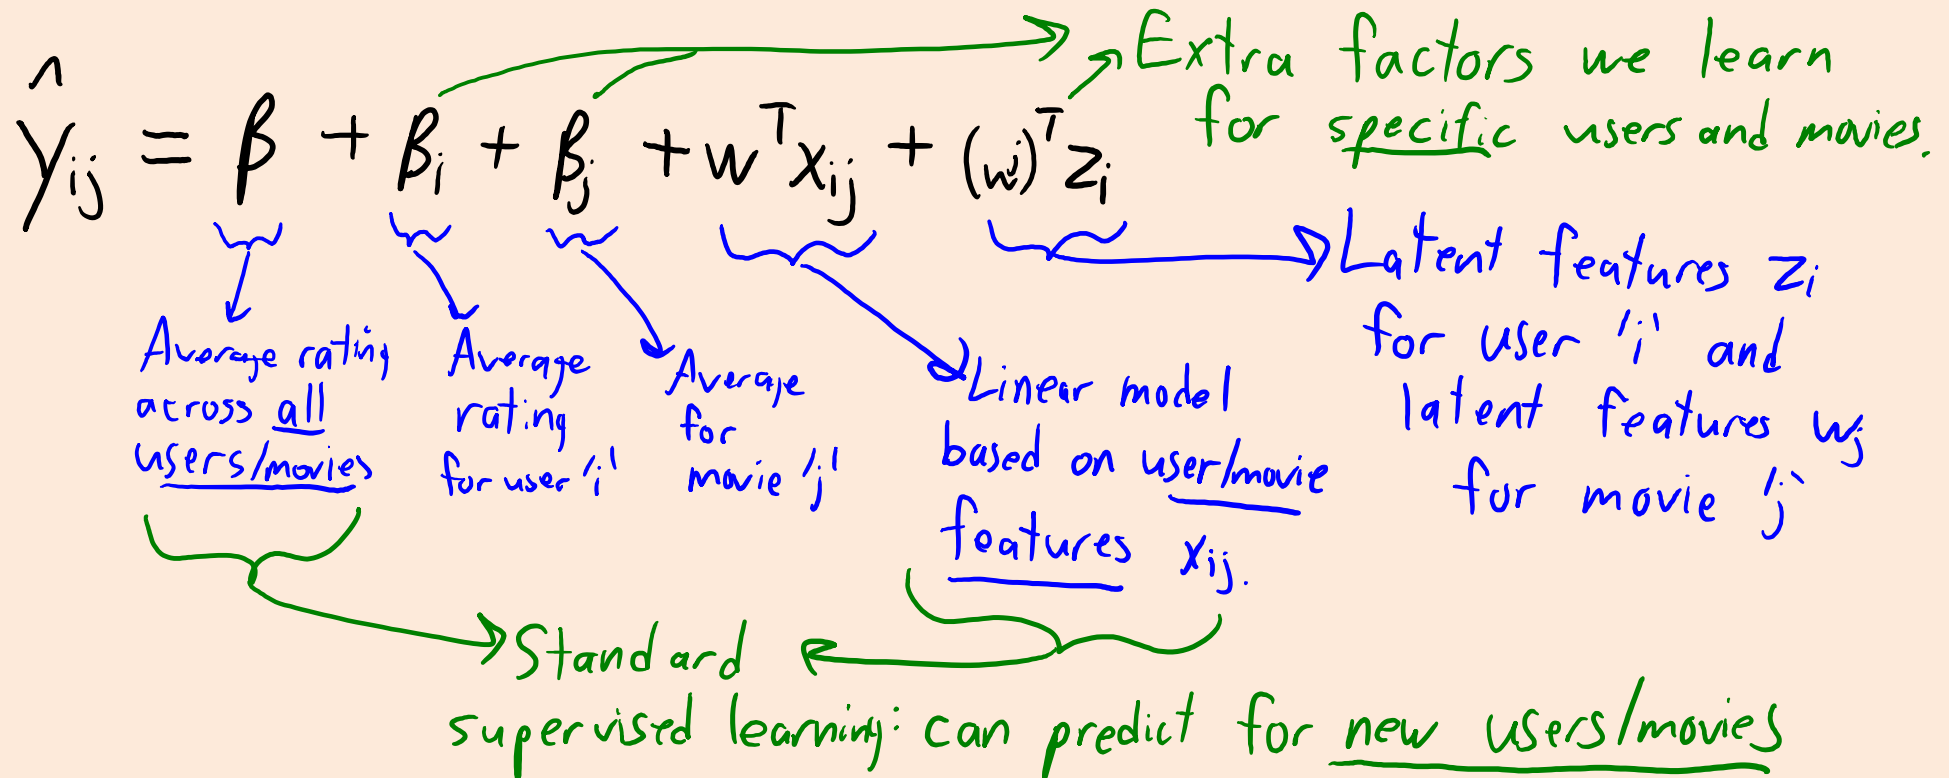 Extra factors we learn
for specific users and movies.
ŷij = β + βi + βj + wᵀxij + (wʲ)ᵀzi
Average rating
across all
users/movies
Average
rating
for user 'i'
Average
for
movie 'j'
Linear model
based on user/movie
features xij.
Latent features zi
for user 'i' and
latent features wj
for movie 'j'
Standard
supervised learning: can predict for new users/movies